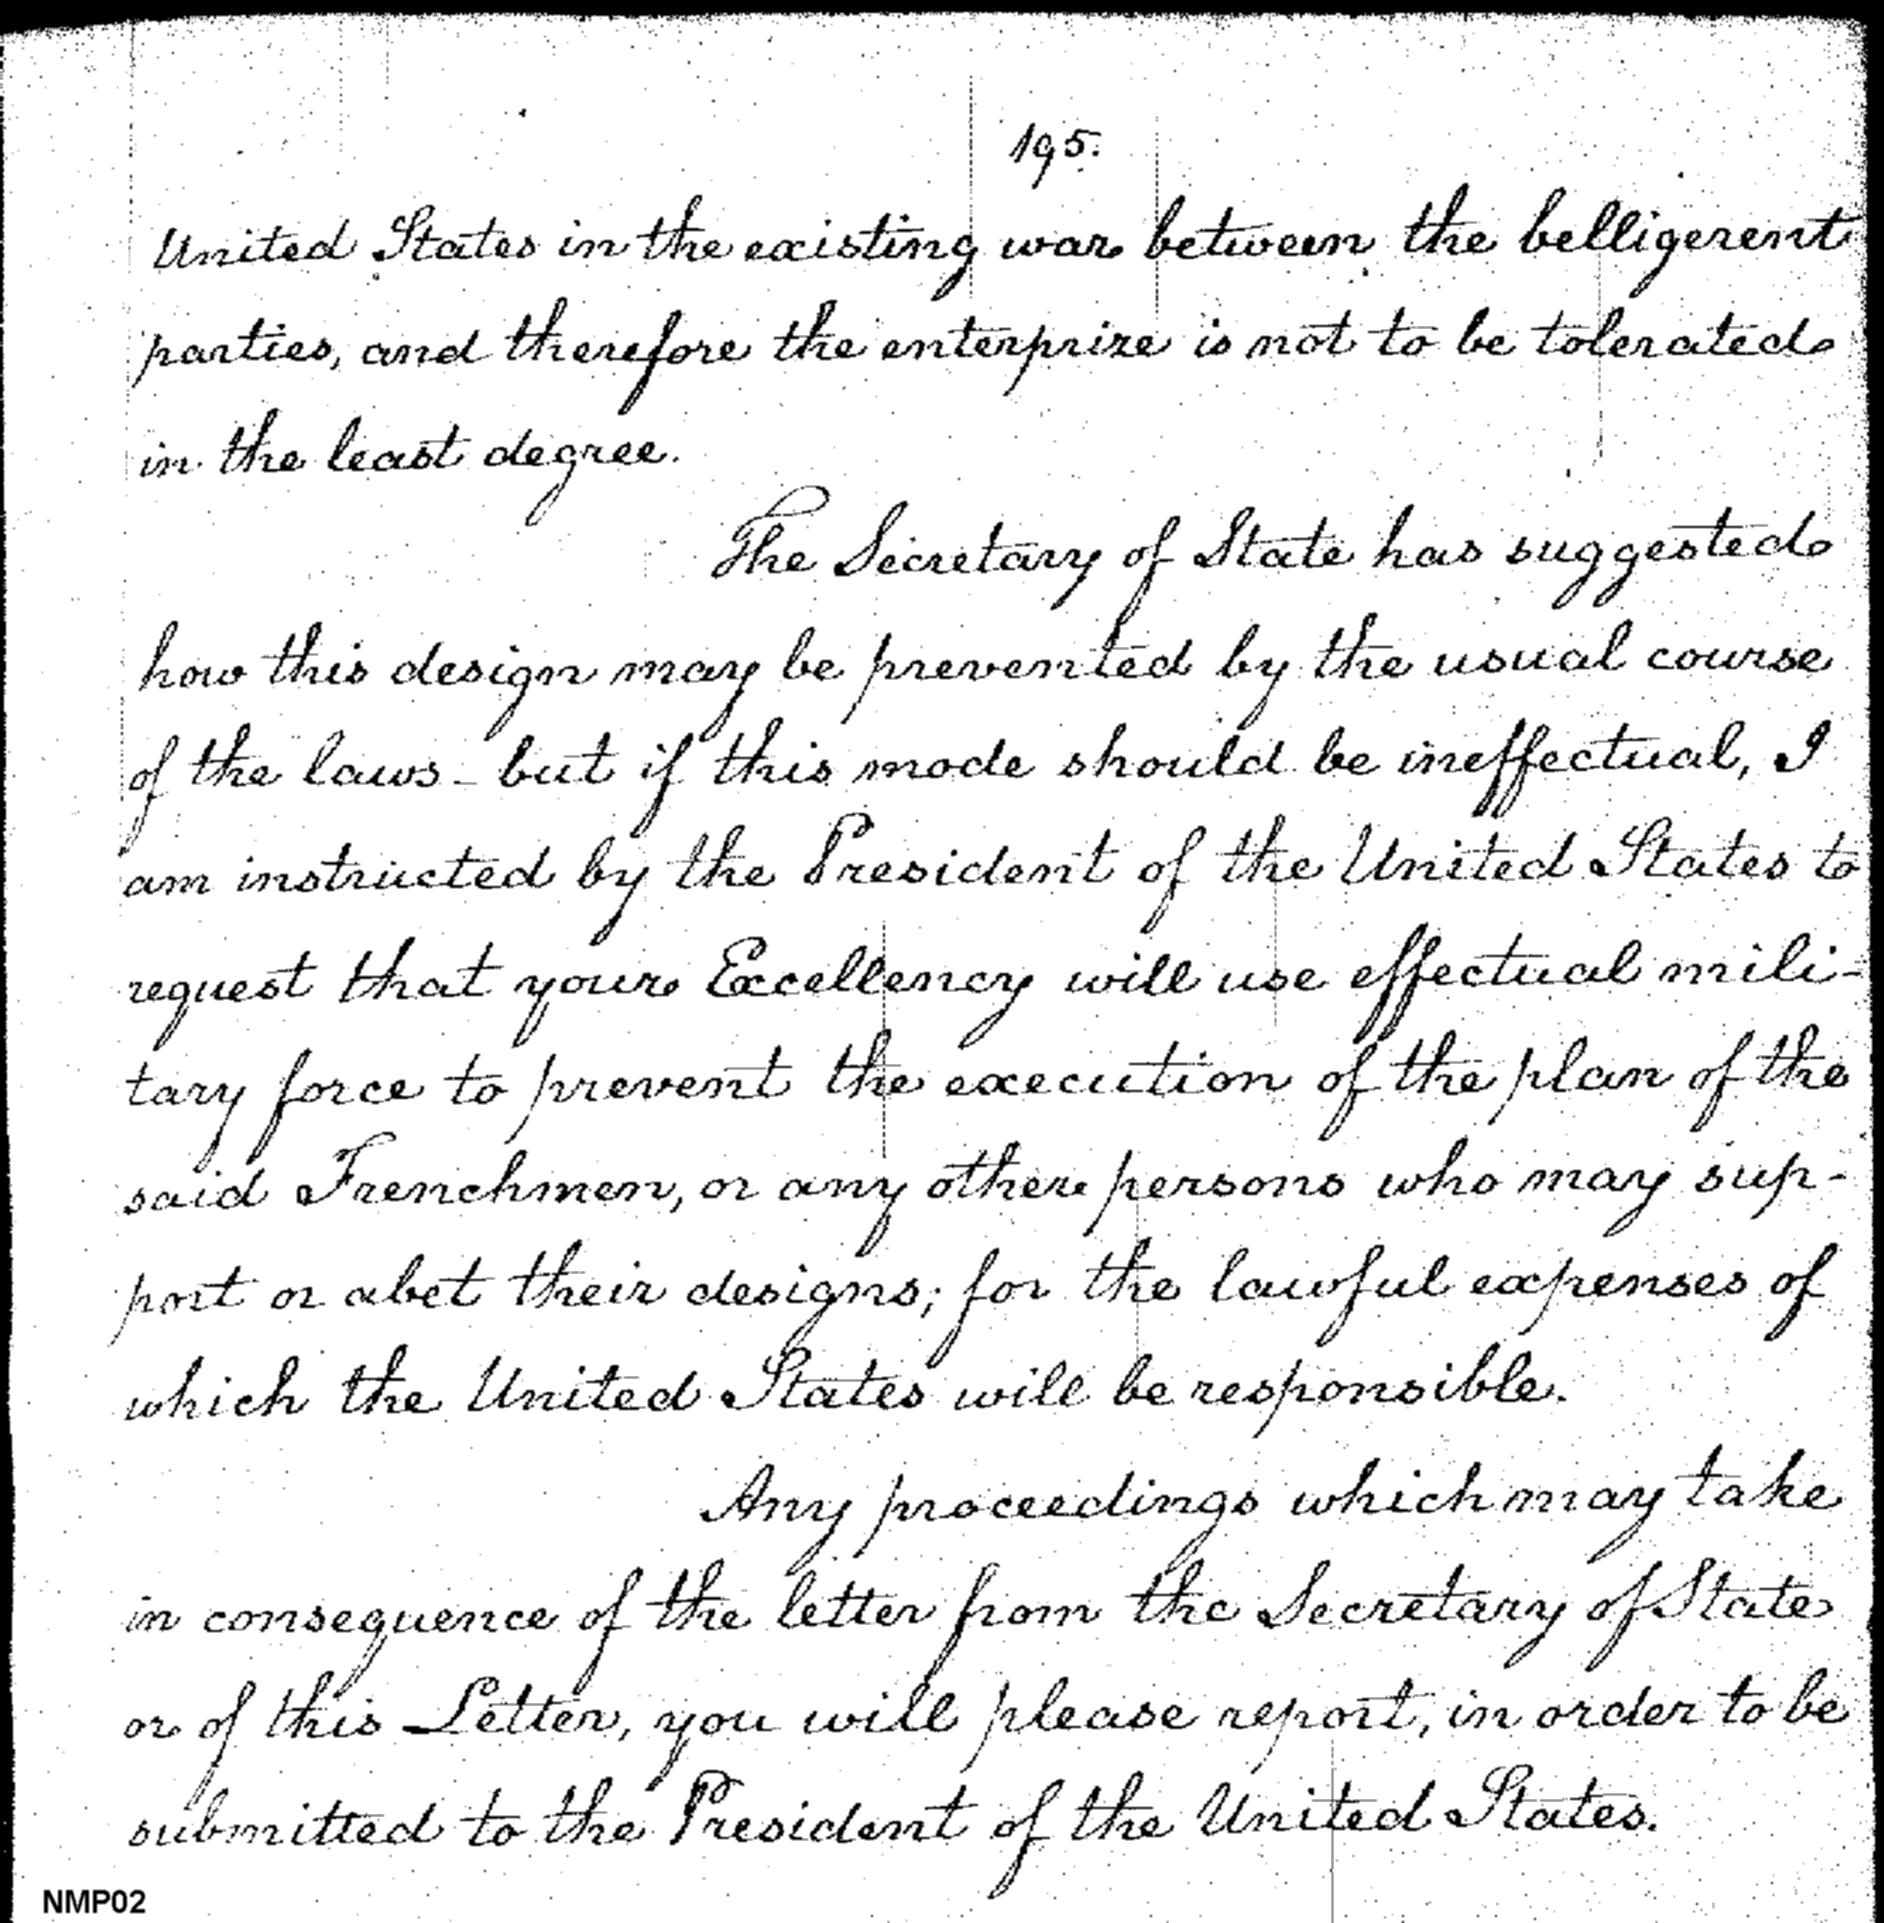 195.
United States in the existing war between the belligerent
parties, and therefore the enterprize is not to be tolerated
in the least degree.
The Secretary of State has suggested
how this design may be prevented by the usual course
of the laws - but if this mode should be ineffectual, I
am instructed by the President of the United States to
request that your Excellency will use effectual mili-
tary force to prevent the execution of the plan of the
said Frenchmen, or any other persons who may sup-
port or abet their designs; for the lawful expenses of
which the United States will be responsible.
Any proceedings which may take
in consequence of the letter from the Secretary of State
or of this Letter, you will please report, in order to be
submitted to the President of the United States.
NMP02